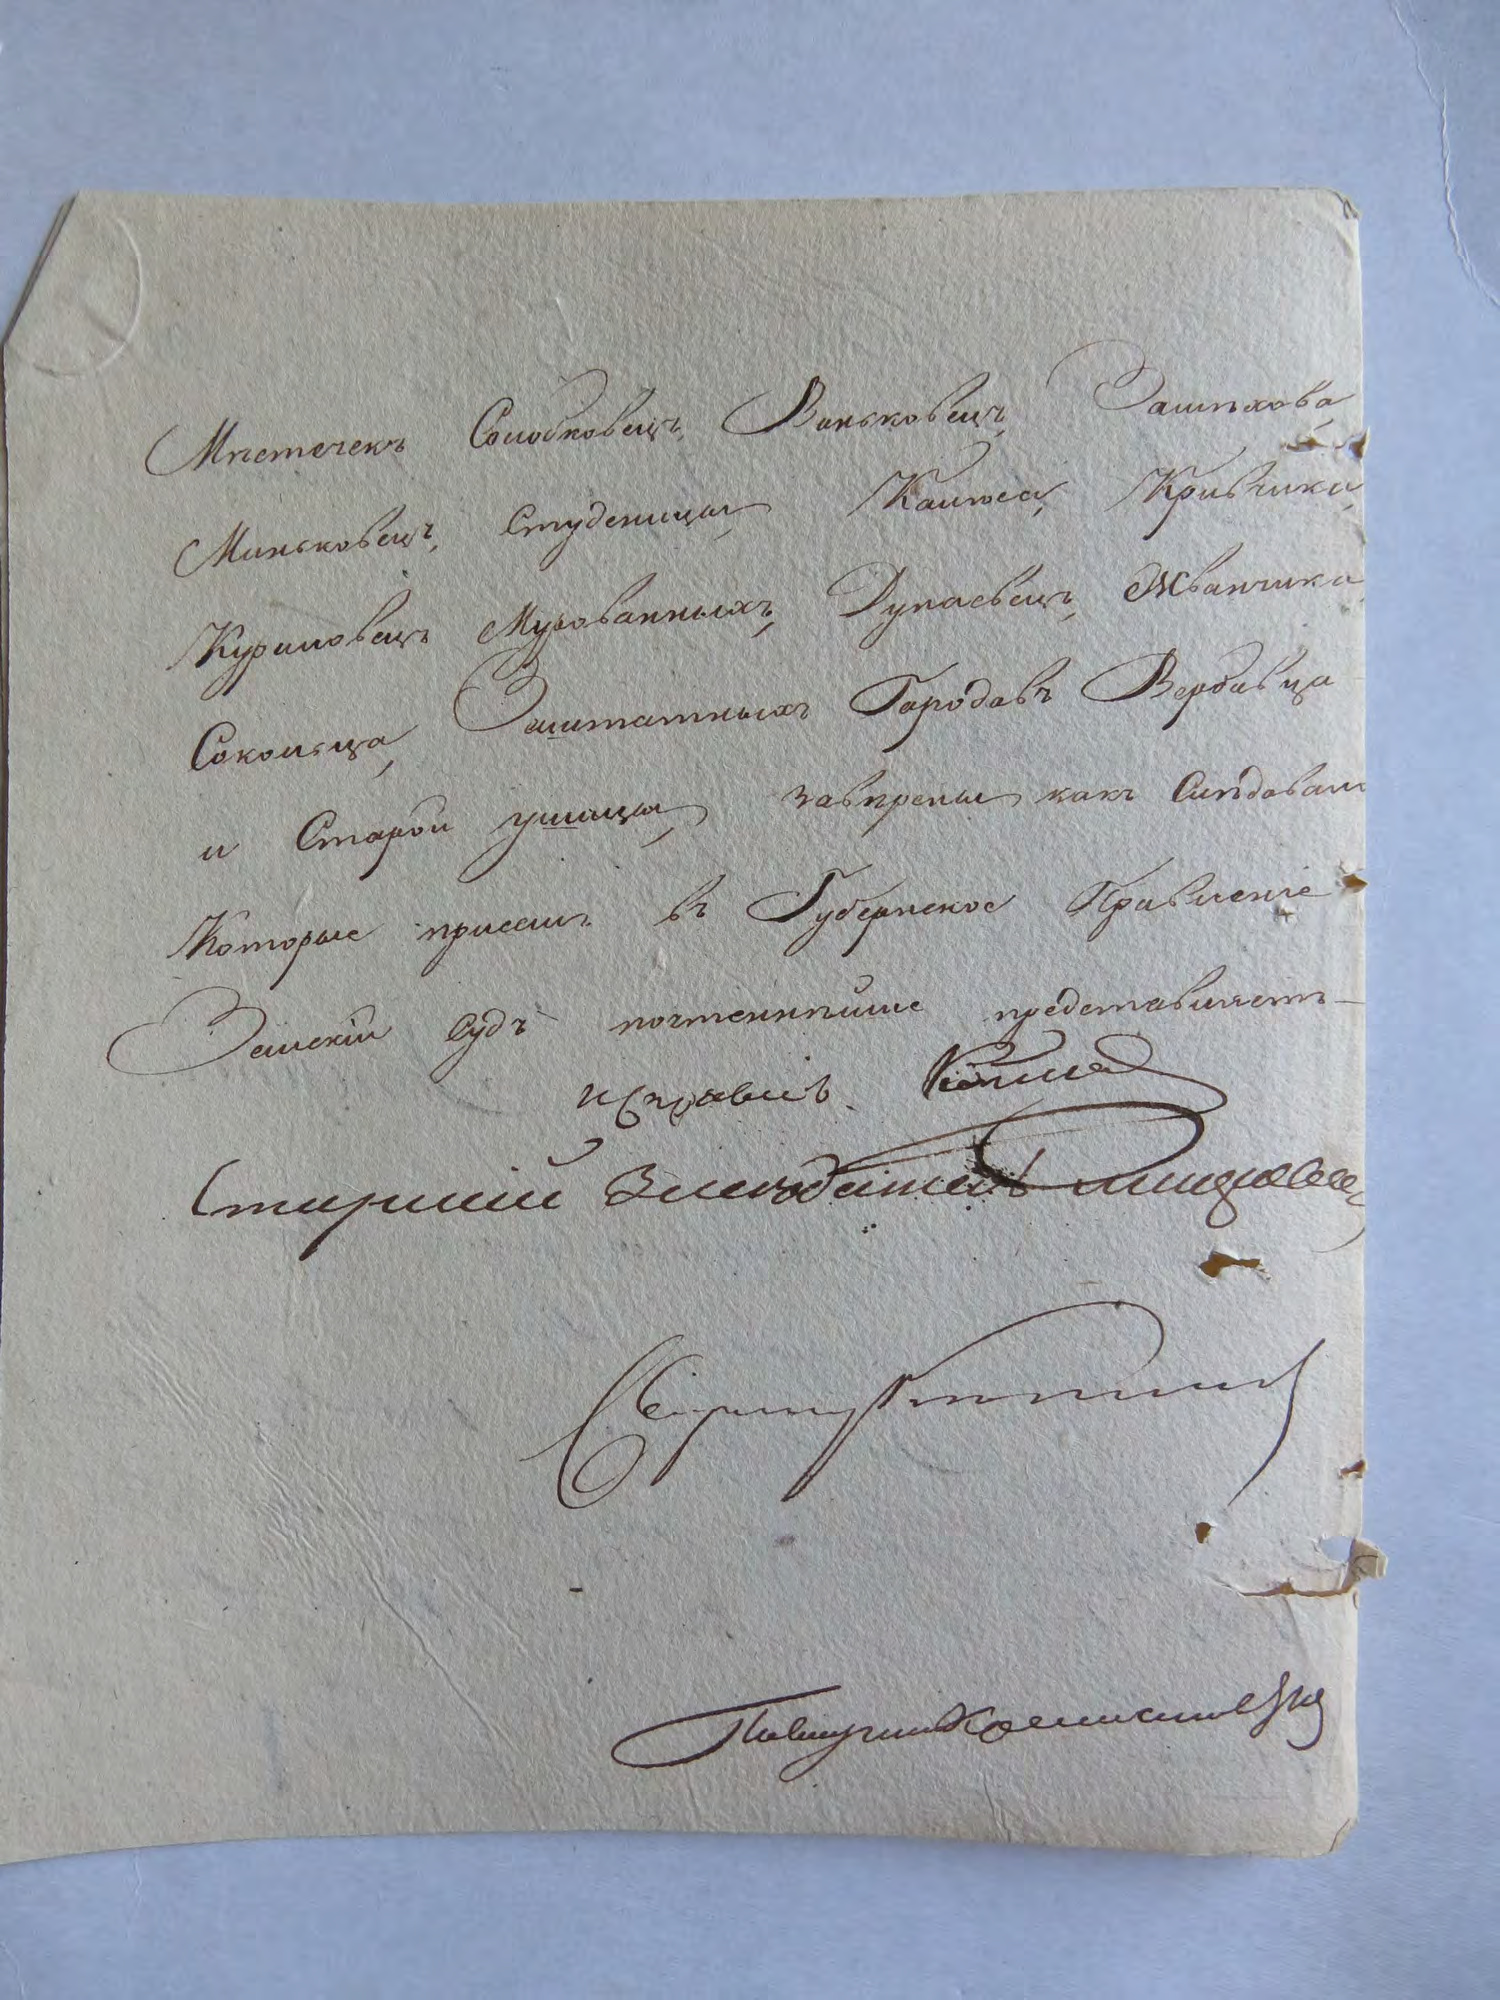 Мѣстечекъ Солобковецъ, Ваньковецъ, Замѣхова,
Миньковецъ, Студеницы, Калюса, Кривчика,
Куриловецъ Мурованныхъ, Дунаевецъ, Жванчика,
Сокольца, Заштатныхъ Городовъ Вербовца
и Старой ушицы, завѣрены какъ Слѣдовало
Которые присемъ въ Губернское Правленіе
Земскій Судъ почтеннѣйше представляетъ
Исправникъ
Старшій Засѣдатель